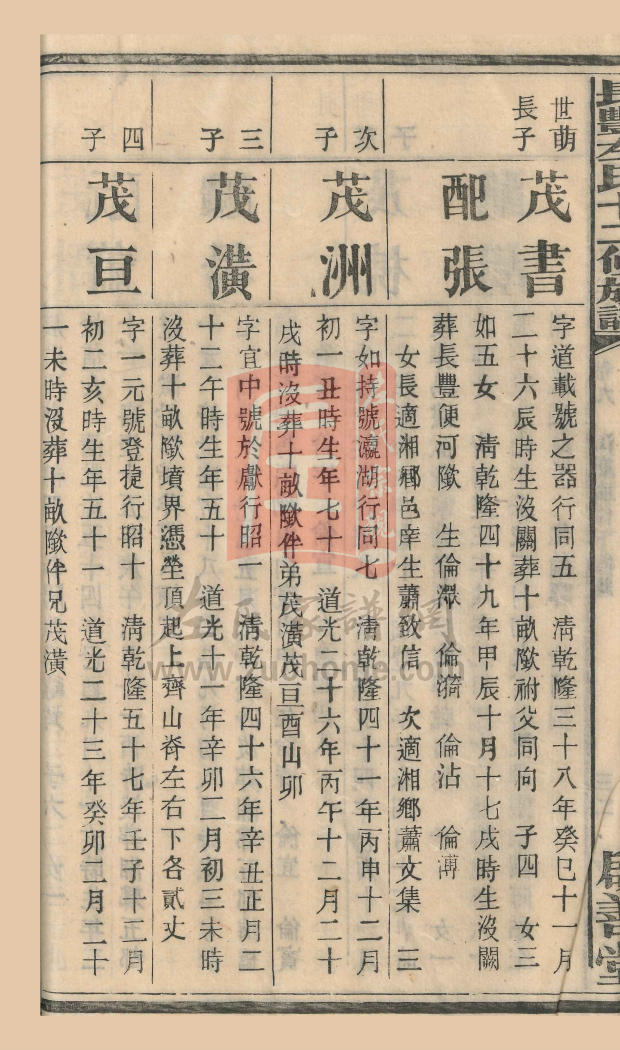 長豐左氏十二修族譜
世萌
長子
茂書
字道載號之器行同五　清乾隆三十八年癸巳十一月
二十六辰時生沒闕葬十畝墩祔父同向　子四　女三
配張
如五女　清乾隆四十九年甲辰十月十七戌時生沒闕
葬長豐便河墩　生倫 倫漪　倫沾　倫溥
女長適湘鄉邑庠生蕭致信　次適湘鄉蕭文集　三
次子
茂洲
字如持號瀛湖行同七　清乾隆四十一年丙申十二月
初一丑時生年七十一　道光二十六年丙午十二月二十
戌時沒葬十畝墩伴弟茂潢茂亘酉山卯
三子
茂潢
字宜中號於獻行昭一　清乾隆四十六年辛丑正月二
十二午時生年五十一　道光十一年辛卯二月初三未時
沒葬十畝墩墳界憑塋頂起上齊山脊左右下各貳丈
四子
茂亘
字一元號登捷行昭十　清乾隆五十七年壬子十二月
初二亥時生年五十一　道光二十三年癸卯二月二十
一未時沒葬十畝墩伴兄茂潢
善堂
左氏家譜網
www.zuohome.com